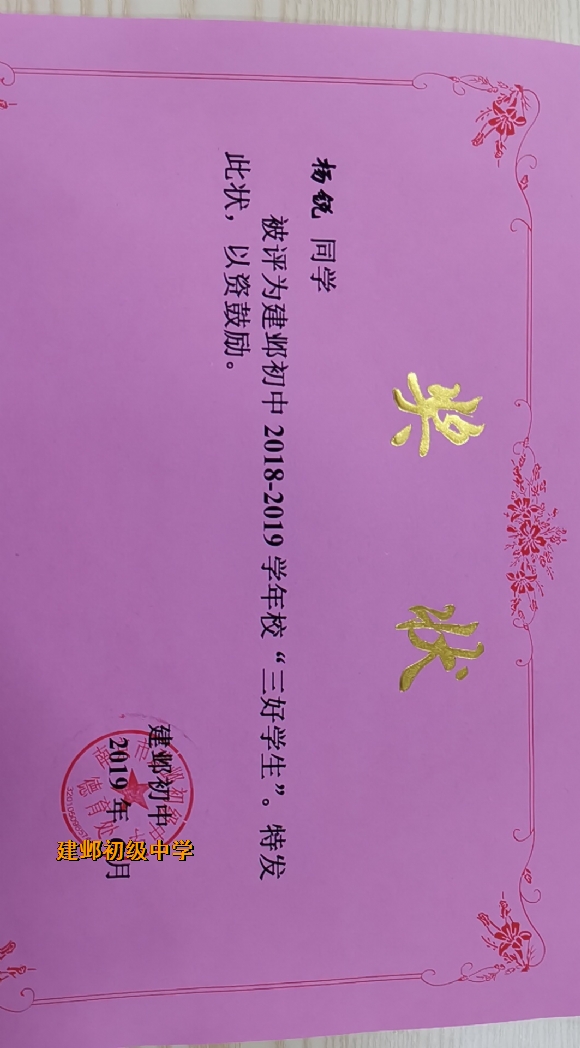 奖 状
杨锐 同学
被评为建邺初中 2018-2019 学年校“三好学生”。特发
此状，以资鼓励。
建邺初中
2019 年 月
德育处
建邺初级中学